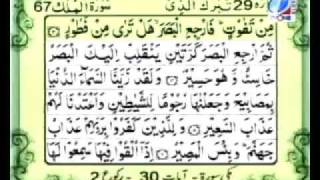 پارہ 29 تبرک الذی سورۃ الملک 67
مِنْ تَفٰوُتٍ ؕ فَارْجِعِ الْبَصَرَ ۙ هَلْ تَرٰی مِنْ فُطُوْرٍ
ثُمَّ ارْجِعِ الْبَصَرَ كَرَّتَیْنِ یَنْقَلِبْ اِلَیْكَ الْبَصَرُ
خَاسِئًا وَّهُوَ حَسِیْرٌ وَلَقَدْ زَیَّنَّا السَّمَآءَ الدُّنْیَا
بِمَصَابِیْحَ وَجَعَلْنٰهَا رُجُوْمًا لِّلشَّیٰطِیْنِ وَاَعْتَدْنَا لَهُمْ
عَذَابَ السَّعِیْرِ وَلِلَّذِیْنَ كَفَرُوْا بِرَبِّهِمْ عَذَابُ
جَهَنَّمَ ؕ وَبِئْسَ الْمَصِیْرُ اِذَاۤ اُلْقُوْا فِیْهَا سَمِعُوْا لَهَا
مکی سورۃ - آیات 30 - رکوع 2